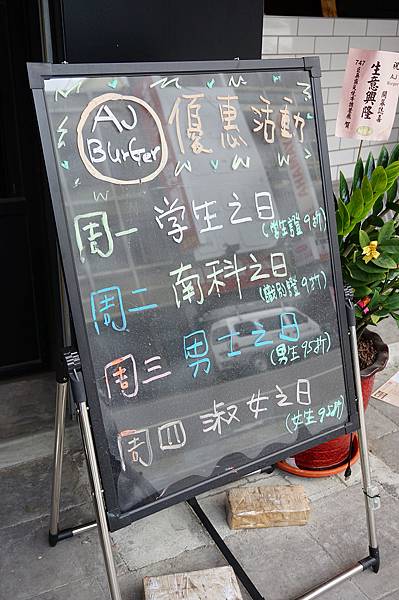 AJ
BurGer
優惠活動
周一 学生之日
(学生證9折)
周二 南科之日
(識別證9折)
周三 男士之日
(男生95折)
周四 淑女之日
(女生95折)
祝
AJ
Burger
開幕誌喜
生意興隆
賀